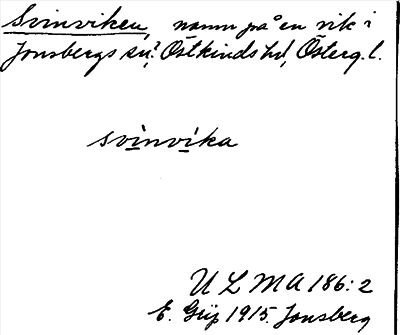 Svinviken, namn på en vik i
Jonsbergs sn, Östkinds hd, Österg. l.
svinvika
ULMA 186:2
E. Grip 1915 Jonsberg